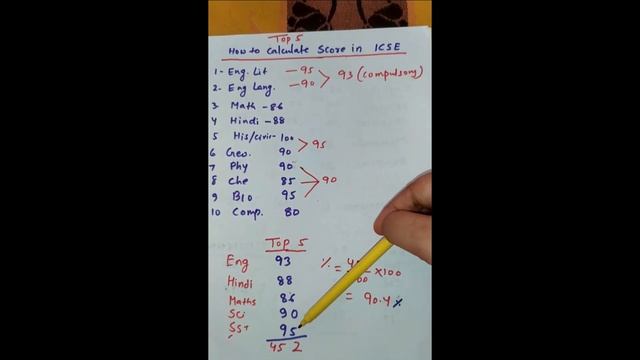 Top 5
How to Calculate Score in ICSE
1 - Eng. Lit — 95
93 (Compulsory)
2 - Eng Lang. — 90
3 Math - 86
4 Hindi - 88
5 His/civic - 100
95
6 Geo. 90
7 Phy 90
8 Che 85 90
9 Bio 95
10 Comp. 80
Top 5
Eng 93
Hindi 88
Maths 86
Sci 90
SST 95
452
% = ×100
= 90.4